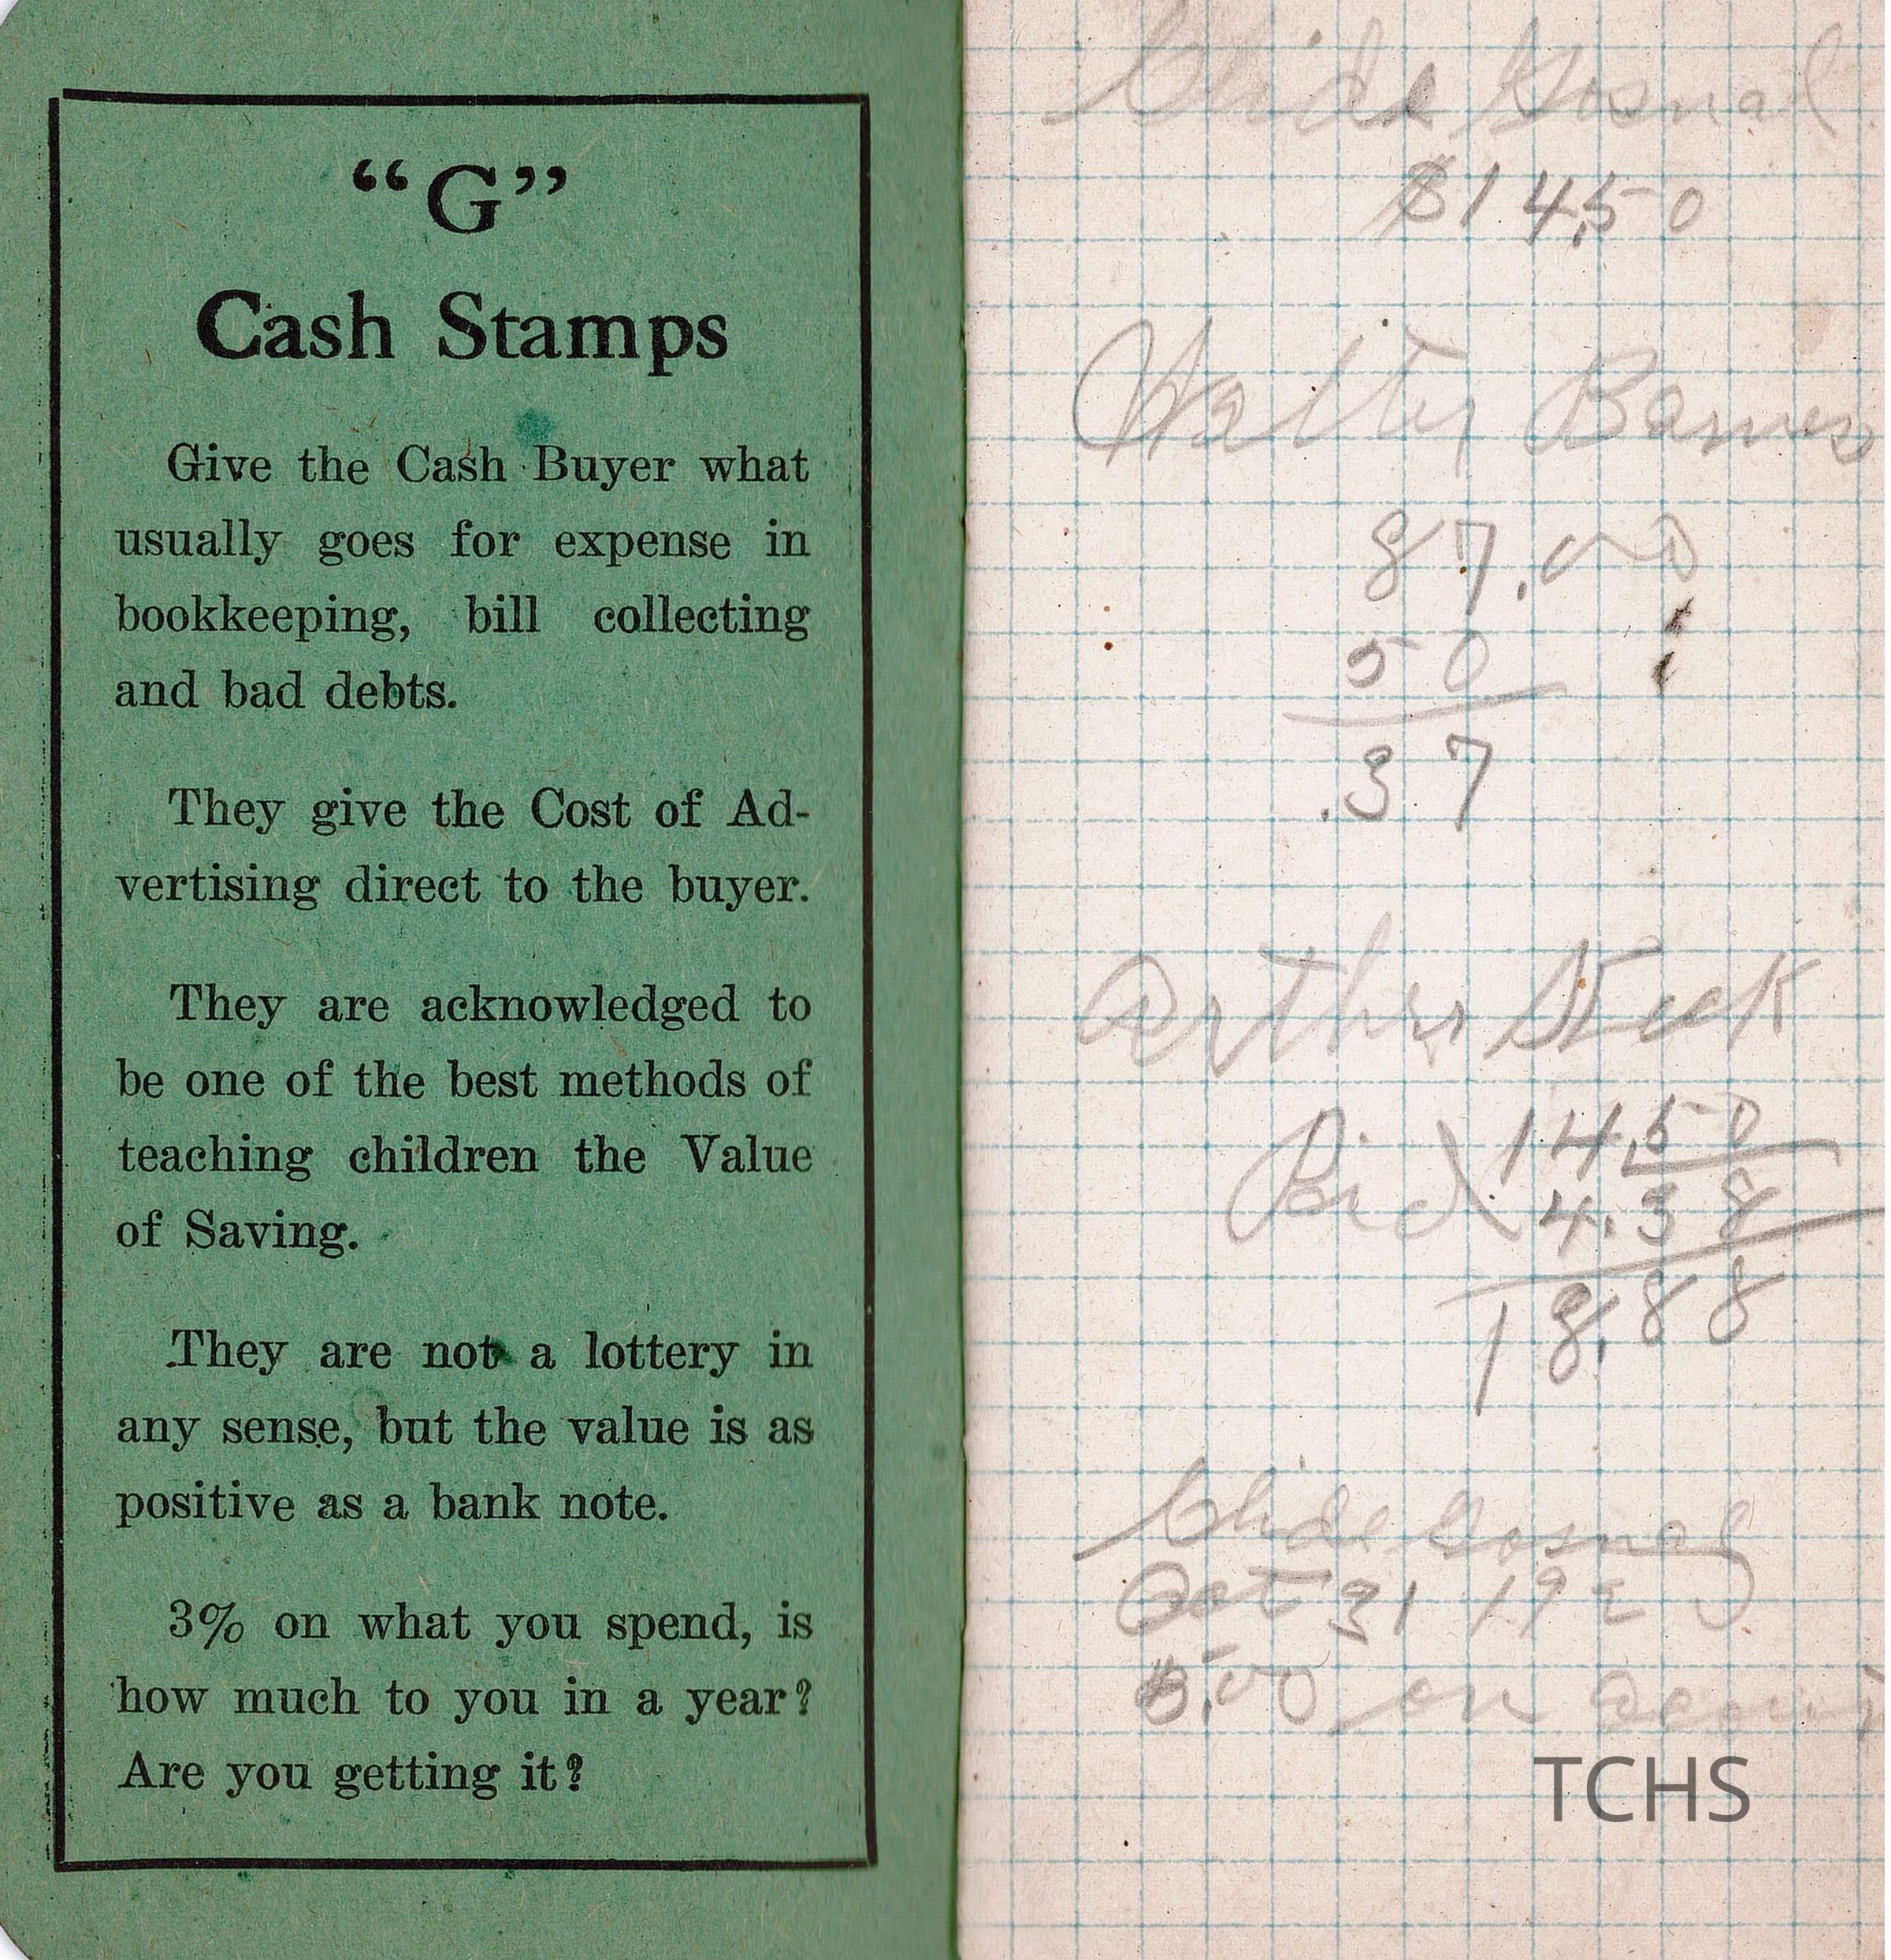 “G”
Cash Stamps
Give the Cash Buyer what
usually goes for expense in
bookkeeping, bill collecting
and bad debts.
They give the Cost of Ad-
vertising direct to the buyer.
They are acknowledged to
be one of the best methods of
teaching children the Value
of Saving.
They are not a lottery in
any sense, but the value is as
positive as a bank note.
3% on what you spend, is
how much to you in a year?
Are you getting it?
Clide Gosnal
$14.50
Walter Barnes
87.00
50
.37
Arther
14.50
4.38
18.88
Clide Gosnal
Oct 31 192
5.00 on
TCHS